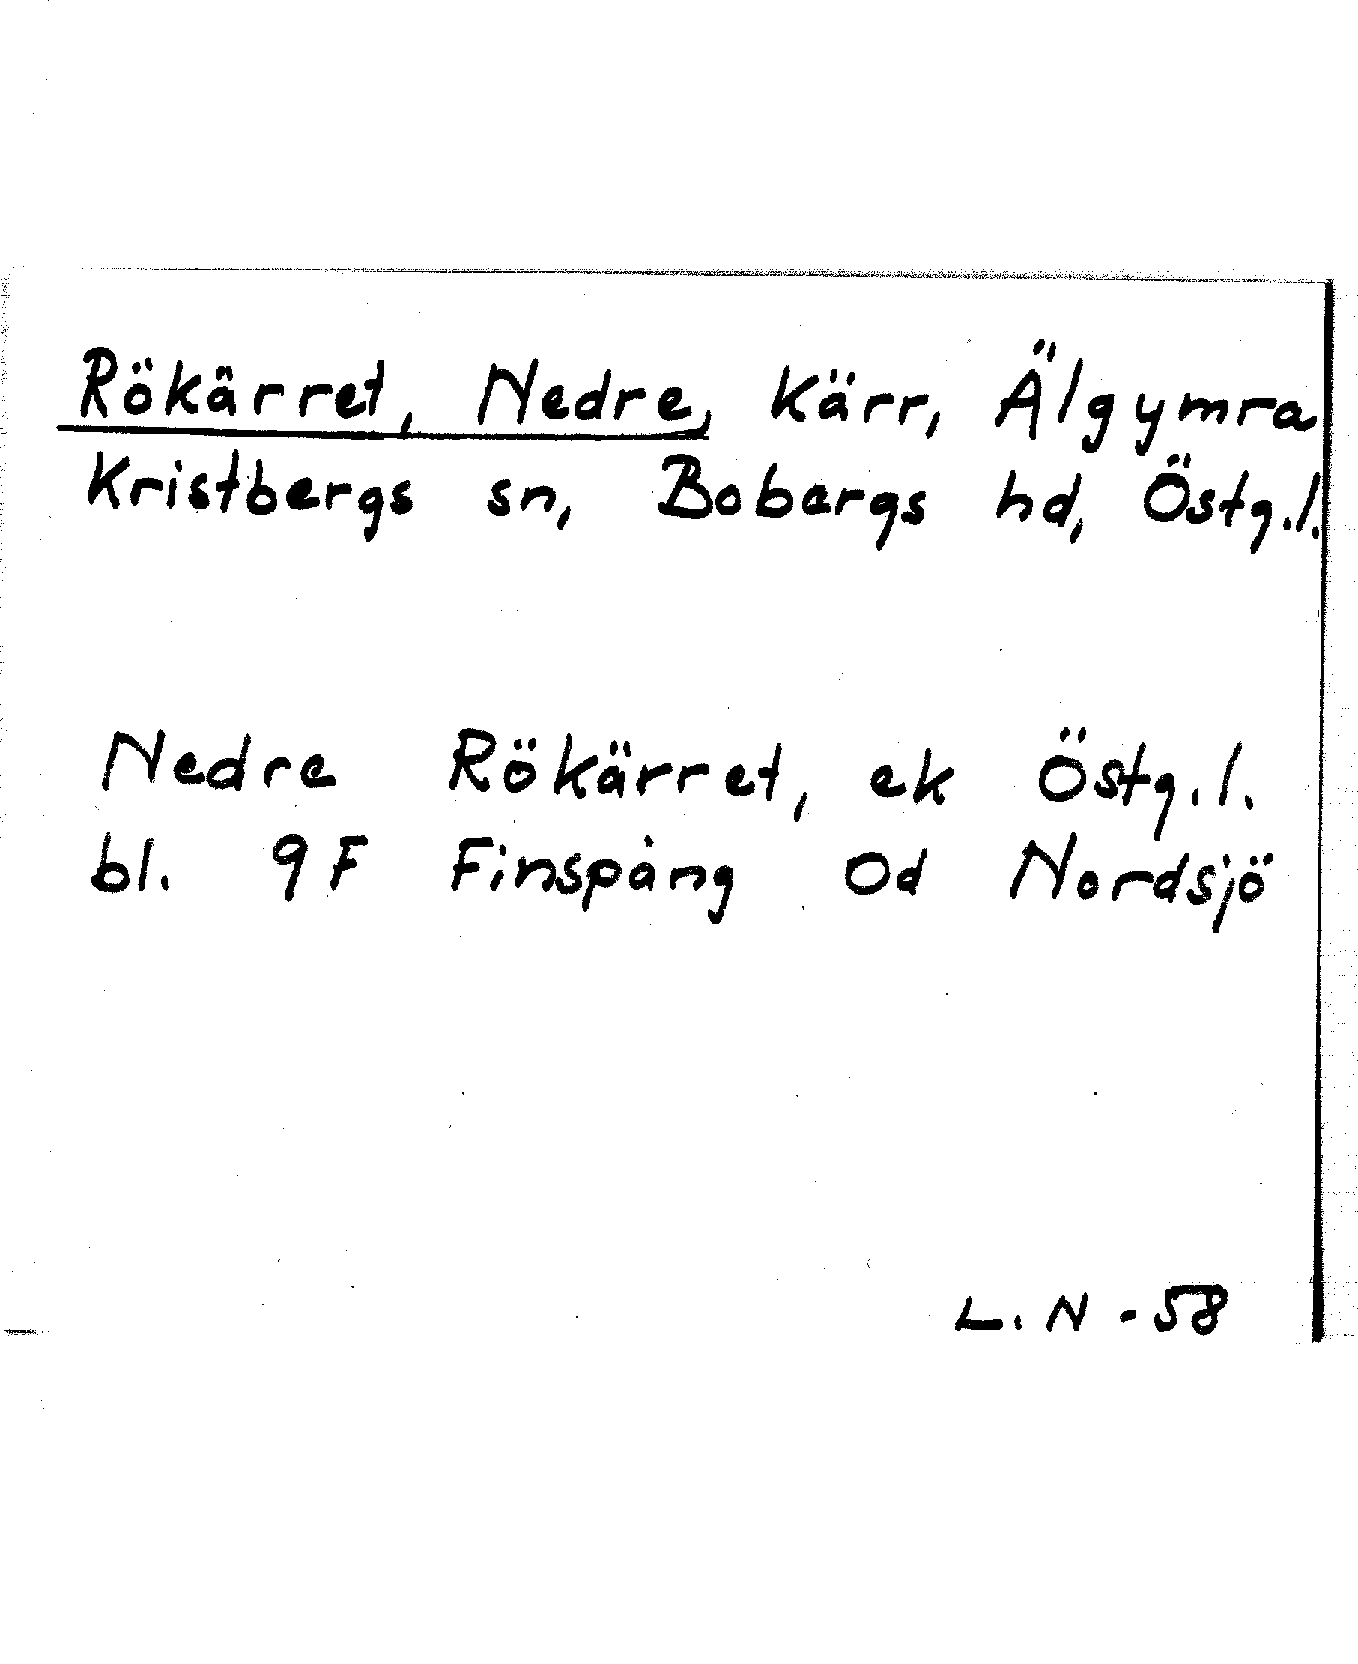 Rökärret, Nedre, Kärr, Älgymra
Kristbergs sn, Bobergs hd, Östg.l.
Nedre Rökärret, ek Östg.l.
bl. 9F Finspång Od Nordsjö
L. N - 58